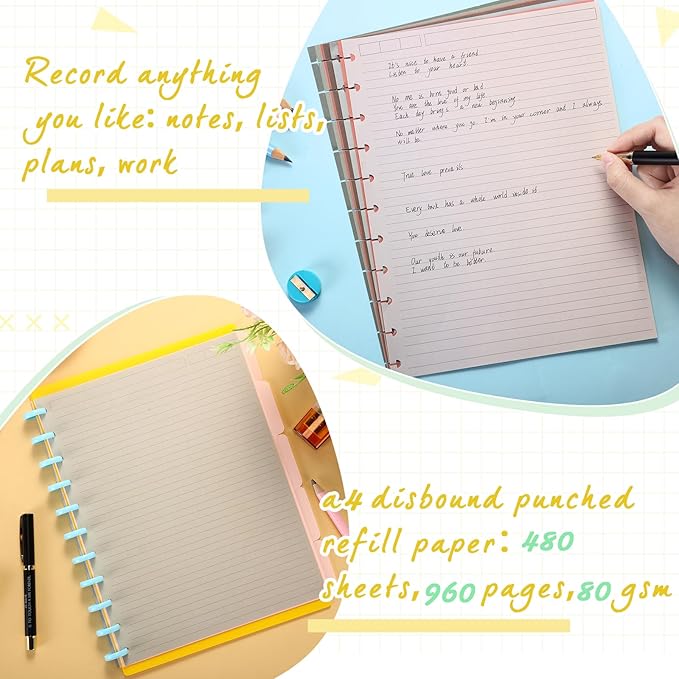 Record anything
you like: notes, lists,
plans, work
It's nice to have a friend
Listen to your heart.
No me is born good or bad
You are the love of my life.
Each day brings a new beginning
No matter where you go. I'm in your corner and I always
will be.
True love prevails
Every book has a whole world inside it
You deserve love
Our youth is our future
I want to be better
a4 disbound punched
refill paper: 480
sheets, 960 pages, 80 gsm